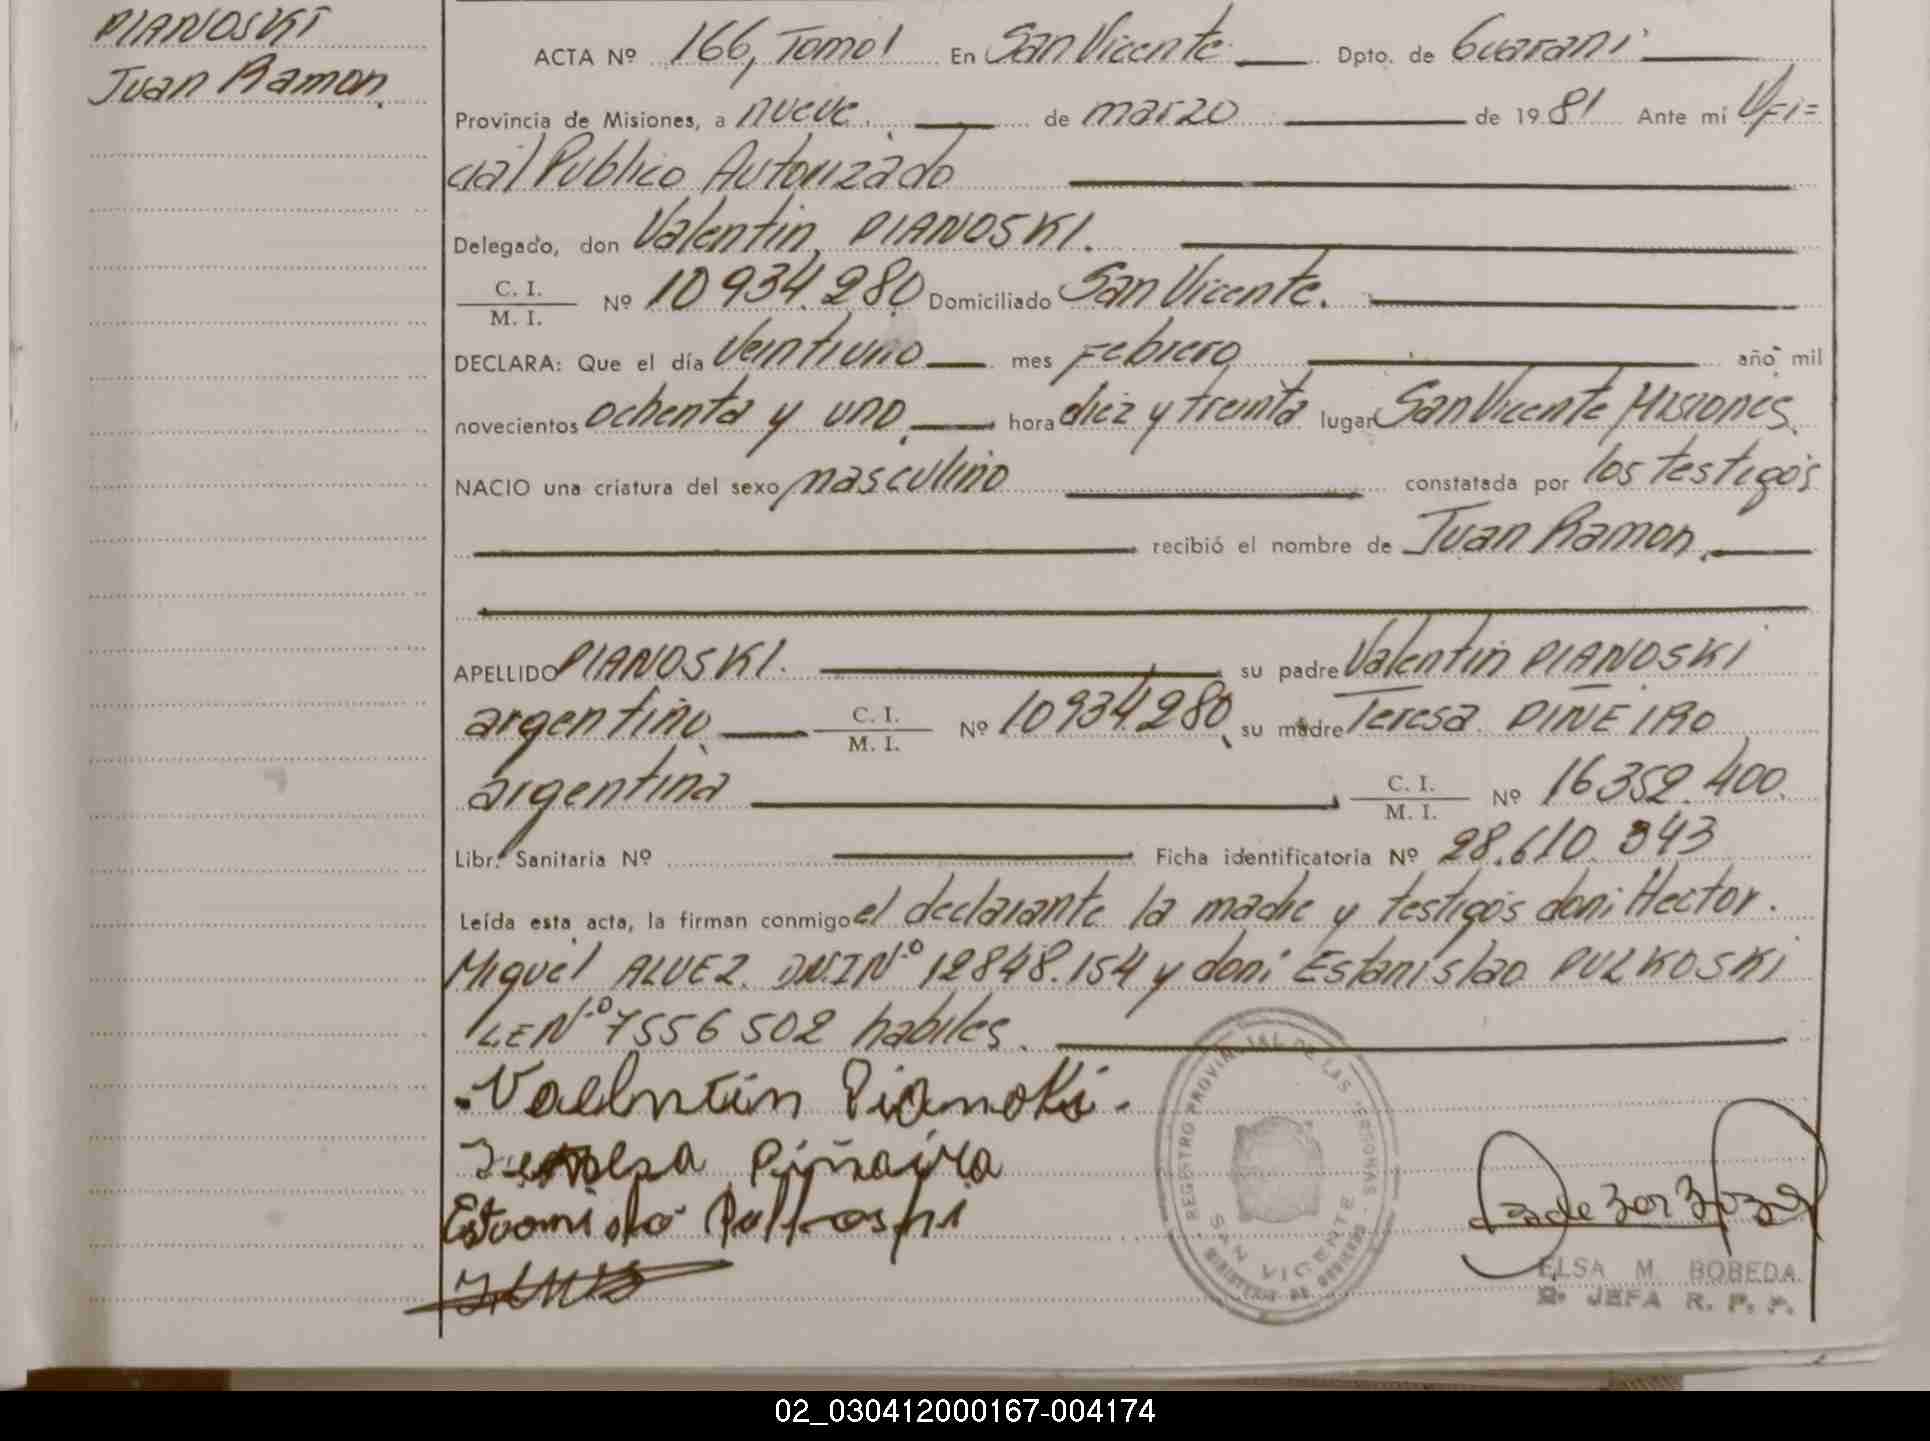 PIANOSKI
Juan Ramon.
ACTA Nº 166, Tomo I En San Vicente Dpto. de Guarani
Provincia de Misiones, a nueve de marzo de 1981 Ante mí Ofi=
cial Publico Autorizado
Delegado, don Valentin PIANOSKI.
C. I. / M. I. Nº 10934.280 Domiciliado San Vicente.
DECLARA: Que el día Veintiuno mes Febrero año mil
novecientos ochenta y uno. hora diez y treinta lugar San Vicente Misiones.
NACIO una criatura del sexo masculino constatada por los testigos
recibió el nombre de Juan Ramon.
APELLIDO PIANOSKI. su padre Valentin PIANOSKI
argentino C. I. / M. I. Nº 10934280 su madre Teresa PIÑEIRO
argentina C. I. / M. I. Nº 16352.400.
Libr. Sanitaria Nº Ficha identificatoria Nº 28.610.343
Leída esta acta, la firman conmigo el declarante la madre y testigos don: Hector
Miguel ALVEZ. DNI Nº 12848.154 y don: Estanislao PULKOSKI
LE Nº 7556502 habiles.
Valentin Pianoki.
Piñaira
Pulkoski
REGISTRO PROVINCIAL DE LAS PERSONAS
SAN VICENTE
MINISTERIO DE GOBIERNO
ELSA M. BOBEDA
JEFA R. P. P.
02_030412000167-004174